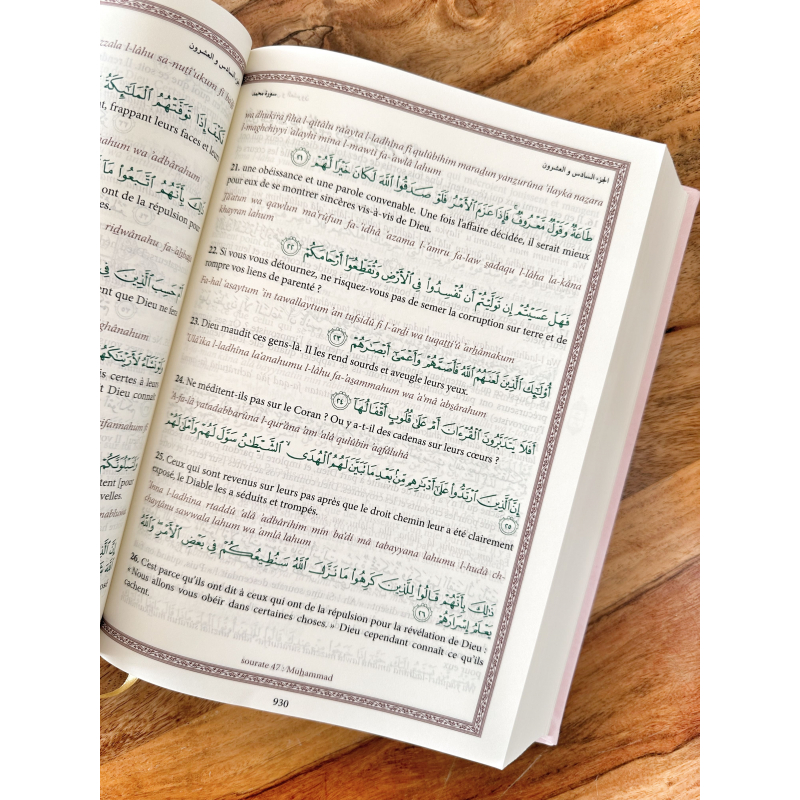 zzala l-lâhu sa-nuṭî'ukum fî
الجزء السادس و العشرون
فَكَيْفَ إِذَا تَوَفَّتْهُمُ ٱلْمَلَٰٓئِكَةُ
frappant leurs faces et leur
ahum wa 'adbârahum
ذَٰلِكَ بِأَنَّهُمُ ٱتَّبَعُوا۟ مَآ
ont de la répulsion pour
riḍwânahu fa-'aḥbaṭa
أَمْ حَسِبَ ٱلَّذِينَ فِى
ent que Dieu ne fera
ghânahum
وَلَوْ نَشَآءُ لَأَرَيْنَٰكَهُمْ
s certes à leur
t Dieu connaît
fannahum f
وَلَنَبْلُوَنَّكُمْ
tent [pour
velles.
سورة محمد
الجزء السادس و العشرون
wa dhukira fîha l-qitâlu ra'ayta l-ladhîna fî qulûbihim maraḍun yanẓurûna 'ilayka naẓara
l-maghshiyyi 'alayhi mina l-mawti fa-'awlâ lahum
طَاعَةٌ وَقَوْلٌ مَّعْرُوفٌ ۚ فَإِذَا عَزَمَ ٱلْأَمْرُ فَلَوْ صَدَقُوا۟ ٱللَّهَ لَكَانَ خَيْرًا لَّهُمْ ٢١
21. une obéissance et une parole convenable. Une fois l'affaire décidée, il serait mieux
pour eux de se montrer sincères vis-à-vis de Dieu.
Ṭâ'atun wa qawlun ma'rûfun fa-'idhâ 'azama l-'amru fa-law ṣadaqu l-lâha la-kâna
khayran lahum
فَهَلْ عَسَيْتُمْ إِن تَوَلَّيْتُمْ أَن تُفْسِدُوا۟ فِى ٱلْأَرْضِ وَتُقَطِّعُوٓا۟ أَرْحَامَكُمْ ٢٢
22. Si vous vous détournez, ne risquez-vous pas de semer la corruption sur terre et de
rompre vos liens de parenté ?
Fa-hal 'asaytum 'in tawallaytum 'an tufsidû fi l-'arḍi wa tuqaṭṭi'û 'arḥâmakum
أُو۟لَٰٓئِكَ ٱلَّذِينَ لَعَنَهُمُ ٱللَّهُ فَأَصَمَّهُمْ وَأَعْمَىٰٓ أَبْصَٰرَهُمْ ٢٣
23. Dieu maudit ces gens-là. Il les rend sourds et aveugle leurs yeux.
'Ulâ'ika l-ladhîna la'anahumu l-lâhu fa-'aṣammahum wa 'a'mâ 'abṣârahum
أَفَلَا يَتَدَبَّرُونَ ٱلْقُرْءَانَ أَمْ عَلَىٰ قُلُوبٍ أَقْفَالُهَآ ٢٤
24. Ne méditent-ils pas sur le Coran ? Ou y a-t-il des cadenas sur leurs cœurs ?
'A-fa-lâ yatadabbarûna l-qur'âna 'am 'alâ qulûbin 'aqfâluhâ
إِنَّ ٱلَّذِينَ ٱرْتَدُّوا۟ عَلَىٰٓ أَدْبَٰرِهِم مِّنۢ بَعْدِ مَا تَبَيَّنَ لَهُمُ ٱلْهُدَى ۙ ٱلشَّيْطَٰنُ سَوَّلَ لَهُمْ وَأَمْلَىٰ لَهُمْ
٢٥
25. Ceux qui sont revenus sur leurs pas après que le droit chemin leur a été clairement
exposé, le Diable les a séduits et trompés.
'Inna l-ladhîna rtaddû 'alâ 'adbârihim min ba'di mâ tabayyana lahumu l-hudâ ch-
chayṭânu sawwala lahum wa 'amlâ lahum
ذَٰلِكَ بِأَنَّهُمْ قَالُوا۟ لِلَّذِينَ كَرِهُوا۟ مَا نَزَّلَ ٱللَّهُ سَنُطِيعُكُمْ فِى بَعْضِ ٱلْأَمْرِ ۖ وَٱللَّهُ
يَعْلَمُ إِسْرَارَهُمْ ٢٦
26. C'est parce qu'ils ont dit à ceux qui ont de la répulsion pour la révélation de Dieu :
« Nous allons vous obéir dans certaines choses. » Dieu cependant connaît ce qu'ils
cachent.
sourate 47 : Muḥammad
930